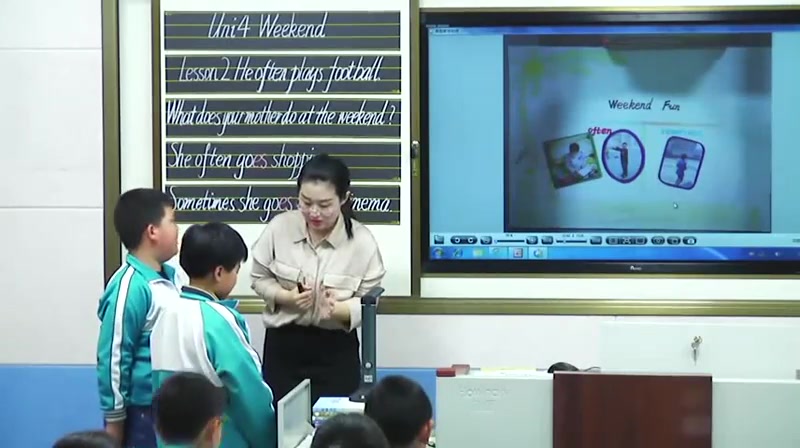 Uni4 Weekend
Lesson 2 He often plays football.
What does you mother do at the weekend?
She often goes shoppi
Sometimes she goes nema.
Weekend Fun
often